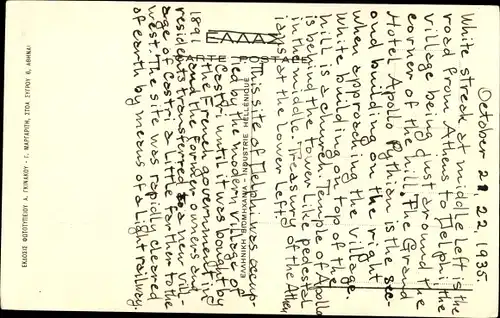 October 21, 22, 1935.
White streak at middle left is the
road from Athens to Delphi. the
village being just around the
corner of the hill. The Grand
Hotel Apollo Pythian is the sec-
ond building on the right
when approaching the village.
White building on top of the
hill is a church. Temple of Apollo
is behind the tower like pedestal
in the middle. Treasury of the Athen
ians at the lower left.
ΕΛΛΑΣ
CARTE POSTALE
ΕΛΛΗΝΙΚΗ ΒΙΟΜΗΧΑΝΙΑ - INDUSTRIE HELLENIQUE
This site of Delphi was occup-
ied by the modern village of
Castri, until it was bought by
the French government in
1891 and the former owners and
residents transferred to a New vill-
age of Castri a little farther to the
west. The site was rapidly cleared
of earth by means of a light railway.
ΕΚΔΟΣΙΣ ΦΩΤΟΤΥΠΕΙΟΥ Α. ΓΚΙΝΑΚΟΥ - Γ. ΜΑΡΓΑΡΙΤΗ, ΣΤΟΑ ΣΠΥΡΟΥ 6, ΑΘΗΝΑΙ